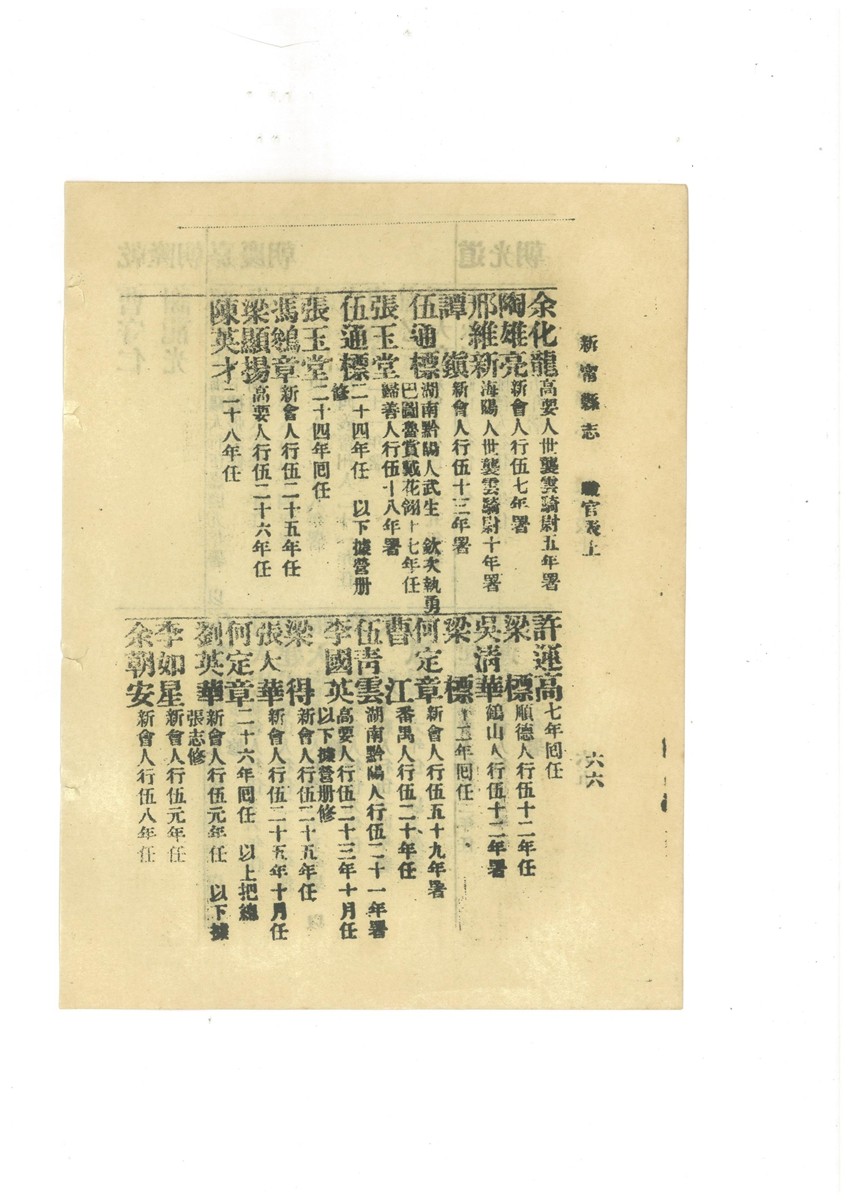 新甯縣志　職官表上　六六
余化龍高要人世襲雲騎尉五年署
陶雄亮新會人行伍七年署
邢維新海陽人世襲雲騎尉十年署
譚鎮新會人行伍十三年署
伍通標湖南黔陽人武生　欽次執勇
巴圖魯賞戴花翎十七年任
張玉堂歸善人行伍十八年署
伍通標二十四年任　以下據營册
修
張玉堂二十四年囘任
馮鵷章新會人行伍二十五年任
梁顯揚高要人行伍二十六年任
陳英才二十八年任
許連高七年囘任
梁標順德人行伍十二年任
吳淸華鶴山人行伍十二年署
梁標十三年囘任
何定章新會人行伍五十九年署
曹江番禺人行伍二十年任
伍靑雲湖南黔陽人行伍二十一年署
李國英高要人行伍二十三年十月任
以下據營册修
梁得新會人行伍二十五年任
張大華新會人行伍二十五年十月任
何定章二十六年囘任　以上把總
劉英華新會人行伍元年任　以下據
張志修
李如星新會人行伍元年任
余朝安新會人行伍八年任
道光朝
嘉慶朝
乾隆朝